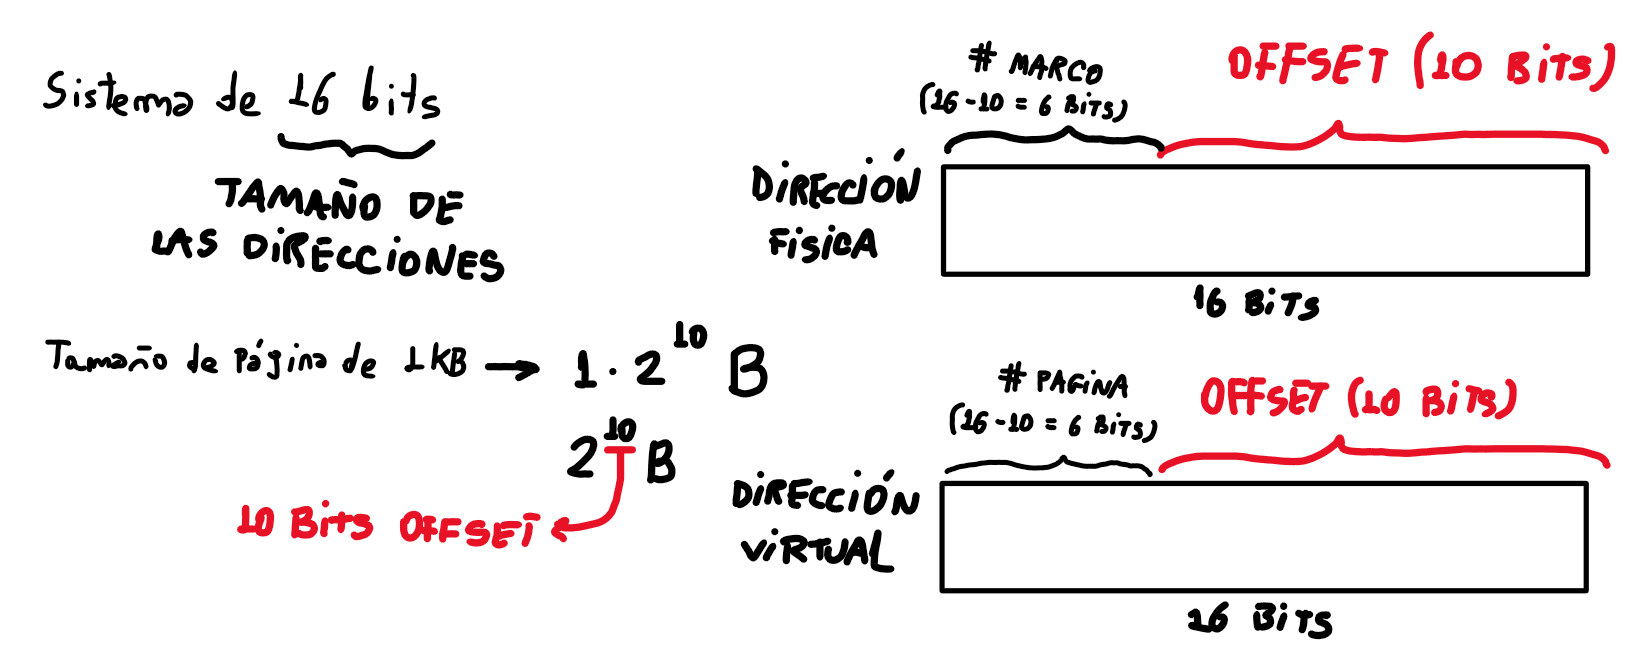 Sistema de 16 bits
TAMAÑO DE
LAS DIRECCIONES
Tamaño de Página de 1KB → 1 · 2^10 B
2^10 B
10 BiTS OFFSET
# MARCO
(16 - 10 = 6 BiTS)
OFFSET (10 BiTS)
DiRECCIÓN
FiSiCA
16 BiTS
# PAGiNA
(16 - 10 = 6 BiTS)
OFFSET (10 BiTS)
DiRECCIÓN
ViRTUAL
16 BiTS